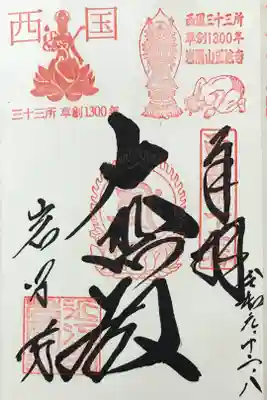 西国
三十三所 草創1300年
西国三十三所
草創1300年
岩間山正法寺
奉拝
大悲殿
岩間寺